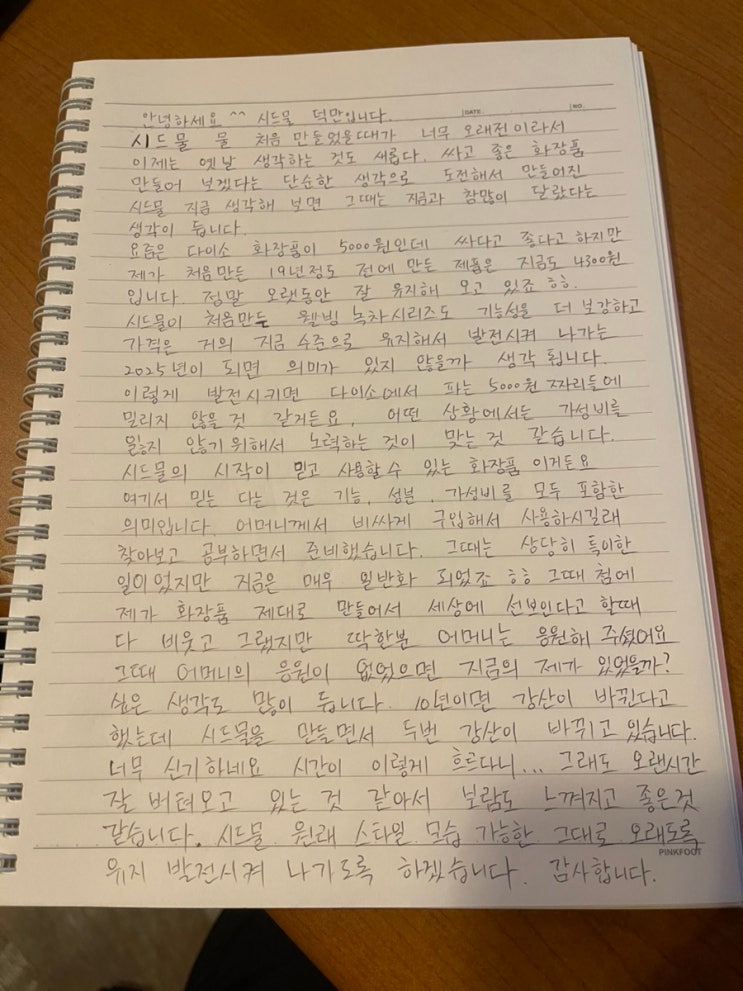 DATE. NO.
안녕하세요 ^^ 시드물 덕만입니다.
시드물 물 처음 만들었을때가 너무 오래전이라서
이제는 옛날 생각하는 것도 새롭다. 싸고 좋은 화장품
만들어 보겠다는 단순한 생각으로 도전해서 만들어진
시드물 지금 생각해 보면 그때는 지금과 참많이 달랐다는
생각이 듭니다.
요즘은 다이소 화장품이 5000원인데 싸다고 좋다고 하지만
제가 처음만든 19년정도 전에 만든 제품은 지금도 4300원
입니다. 정말 오랫동안 잘 유지해 오고 있죠 ㅎㅎ.
시드물이 처음만든 웰빙 녹차시리즈도 기능성을 더 보강하고
가격은 거의 지금 수준으로 유지해서 발전시켜 나가는
2025년이 되면 의미가 있지 않을까 생각 됩니다.
이렇게 발전시키면 다이소에서 파는 5000원 짜리들에
밀리지 않을 것 같거든요. 어떤 상황에서는 가성비를
잃지 않기 위해서 노력하는 것이 맞는 것 같습니다.
시드물의 시작이 믿고 사용할 수 있는 화장품 이거든요
여기서 믿는 다는 것은 기능, 성분, 가성비를 모두 포함한
의미입니다. 어머니께서 비싸게 구입해서 사용하시길래
찾아보고 공부하면서 준비했습니다. 그때는 상당히 특이한
일이었지만 지금은 매우 일반화 되었죠 ㅎㅎ 그때 첨에
제가 화장품 제대로 만들어서 세상에 선보인다고 할때
다 비웃고 그랬지만 딱한분 어머니는 응원해 주셨어요
그때 어머니의 응원이 없었으면 지금의 제가 있었을까?
싶은 생각도 많이 듭니다. 10년이면 강산이 바뀐다고
했는데 시드물을 만들면서 두번 강산이 바뀌고 있습니다.
너무 신기하네요 시간이 이렇게 흐르다니... 그래도 오랜시간
잘 버텨오고 있는 것 같아서 보람도 느껴지고 좋은것
같습니다. 시드물 원래 스타일 모습 가능한 그대로 오래도록
유지 발전시켜 나가도록 하겠습니다. 감사합니다.
PINKFOOT